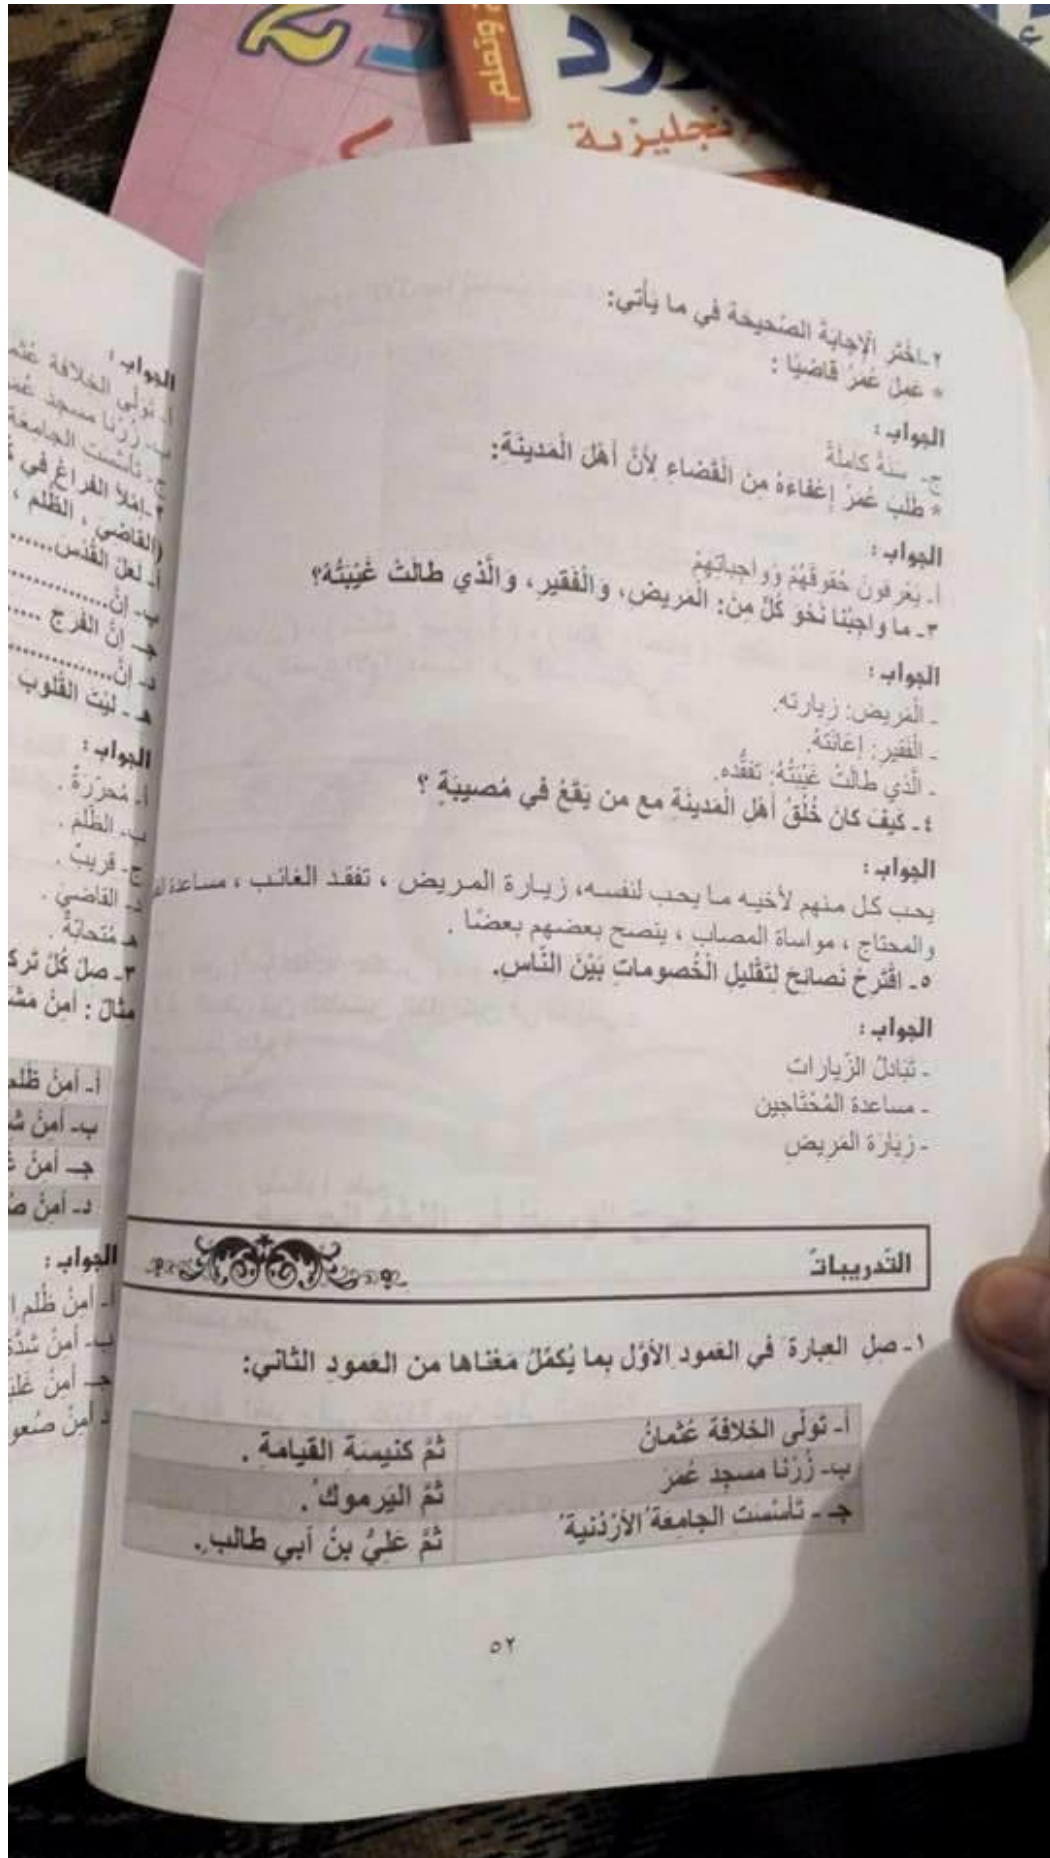 وتعلم
نجليزية
٢-اخْتَرِ الْإِجابَةَ الصَّحيحَةَ في ما يَأْتي:
* عَمِلَ عُمَرُ قاضِيًا :
الجواب :
ج- سَنَةً كامِلَةً
* طَلَبَ عُمَرُ إعْفاءَهُ مِنَ الْقَضاءِ لِأَنَّ أَهْلَ الْمَدينَةِ:
الجواب :
أ- يَعْرِفونَ حُقوقَهُمْ وَواجِباتِهِمْ
٣- ما واجِبُنا نَحْوَ كُلٍّ مِنْ: الْمَريضِ، وَالْفَقيرِ، وَالَّذي طالَتْ غَيْبَتُهُ؟
الجواب :
- الْمَريض: زيارته.
- الْفَقير: إعَانَتَهُ.
- الَّذي طالَتْ غَيْبَتُهُ: تَفَقُّده.
٤- كَيْفَ كانَ خُلُقُ أَهْلِ الْمَدينَةِ مَع من يَقَعُ في مُصيبَةٍ ؟
الجواب :
يحب كل منهم لأخيه ما يحب لنفسه، زيارة المريض ، تفقد الغائب ، مساعدة
والمحتاج ، مواساة المصاب ، ينصح بعضهم بعضًا .
٥- اقْتَرِحْ نَصائحَ لِتَقْليلِ الْخُصوماتِ بَيْنَ النّاسِ.
الجواب :
- تَبَادلُ الزّيارات
- مساعدة المُحْتَاجين
- زِيَارَة المَريضِ
التّدريباتُ
١- صلِ العِبارةَ في العَمودِ الأوّلِ بما يُكمّلُ مَعْناها من العَمودِ الثّاني:
أ- تَولّى الخلافة عُثمانُ ثُمَّ كنيسَةِ القيامَةِ .
ب- زُرْنا مسجد عُمَرَ ثُمّ اليَرموك ُ.
جـ - تأسّسَتِ الجامِعَة ُالأرْدُنية ُ ثُمَّ عَلِيُّ بنُ أبي طالب ٍ.
٥٢
الجواب :
أ- تَولّى الخلافة
ب- زُرْنا مسجد
ج- تأسّست الجامعة
٢-امْلأ الفَراغَ في
(القاضي ، الظُّلم ،
أ- لعلّ القُدْس......
ب- إنّ............
جـ- إنّ الفَرَجَ ......
د- إنّ............
هـ - ليْتَ القُلوبَ
الجواب :
أ- مُحرّرَةٌ .
ب- الظّلمَ .
ج- قريبٌ .
د- القاضيَ .
هـ مُتحابّةٌ .
٣- صلْ كُلّ
مِثالٌ : أمِنْ
أ- أمنْ ظُلم
ب- أمنْ
جـ- أمنْ
د- أمنْ
الجواب :
أ- أمِنْ ظُلم
ب- أمنْ
جـ- أمِنْ
د أمِنْ